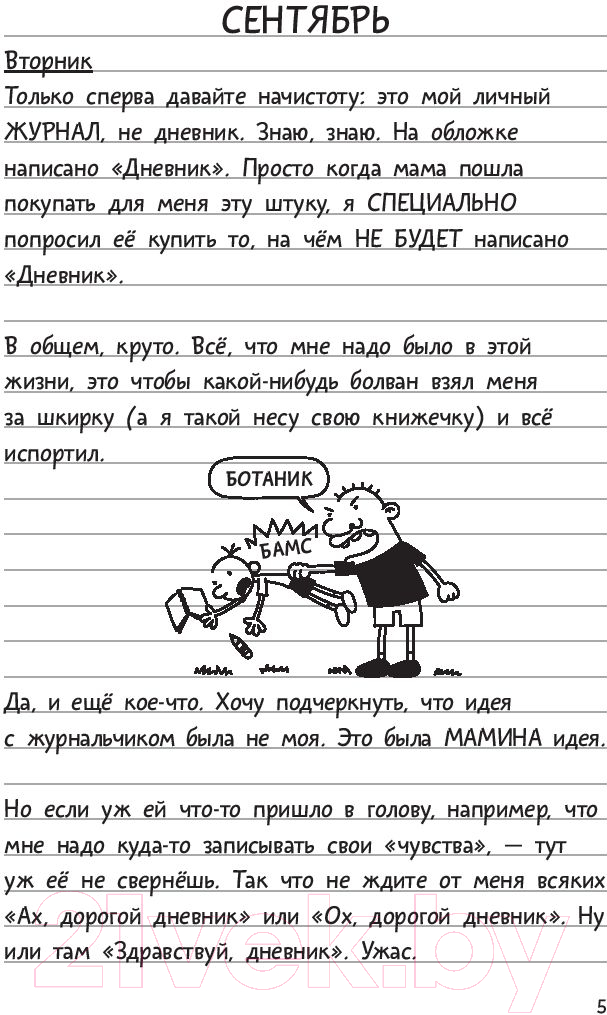 СЕНТЯБРЬ
Вторник
Только сперва давайте начистоту: это мой личный
ЖУРНАЛ, не дневник. Знаю, знаю. На обложке
написано «Дневник». Просто когда мама пошла
покупать для меня эту штуку, я СПЕЦИАЛЬНО
попросил её купить то, на чём НЕ БУДЕТ написано
«Дневник».
В общем, круто. Всё, что мне надо было в этой
жизни, это чтобы какой-нибудь болван взял меня
за шкирку (а я такой несу свою книжечку) и всё
испортил.
БОТАНИК
БАМС
Да, и ещё кое-что. Хочу подчеркнуть, что идея
с журнальчиком была не моя. Это была МАМИНА идея.
Но если уж ей что-то пришло в голову, например, что
мне надо куда-то записывать свои «чувства», — тут
уж её не свернёшь. Так что не ждите от меня всяких
«Ах, дорогой дневник» или «Ох, дорогой дневник». Ну
или там «Здравствуй, дневник». Ужас.
21vek.by
5